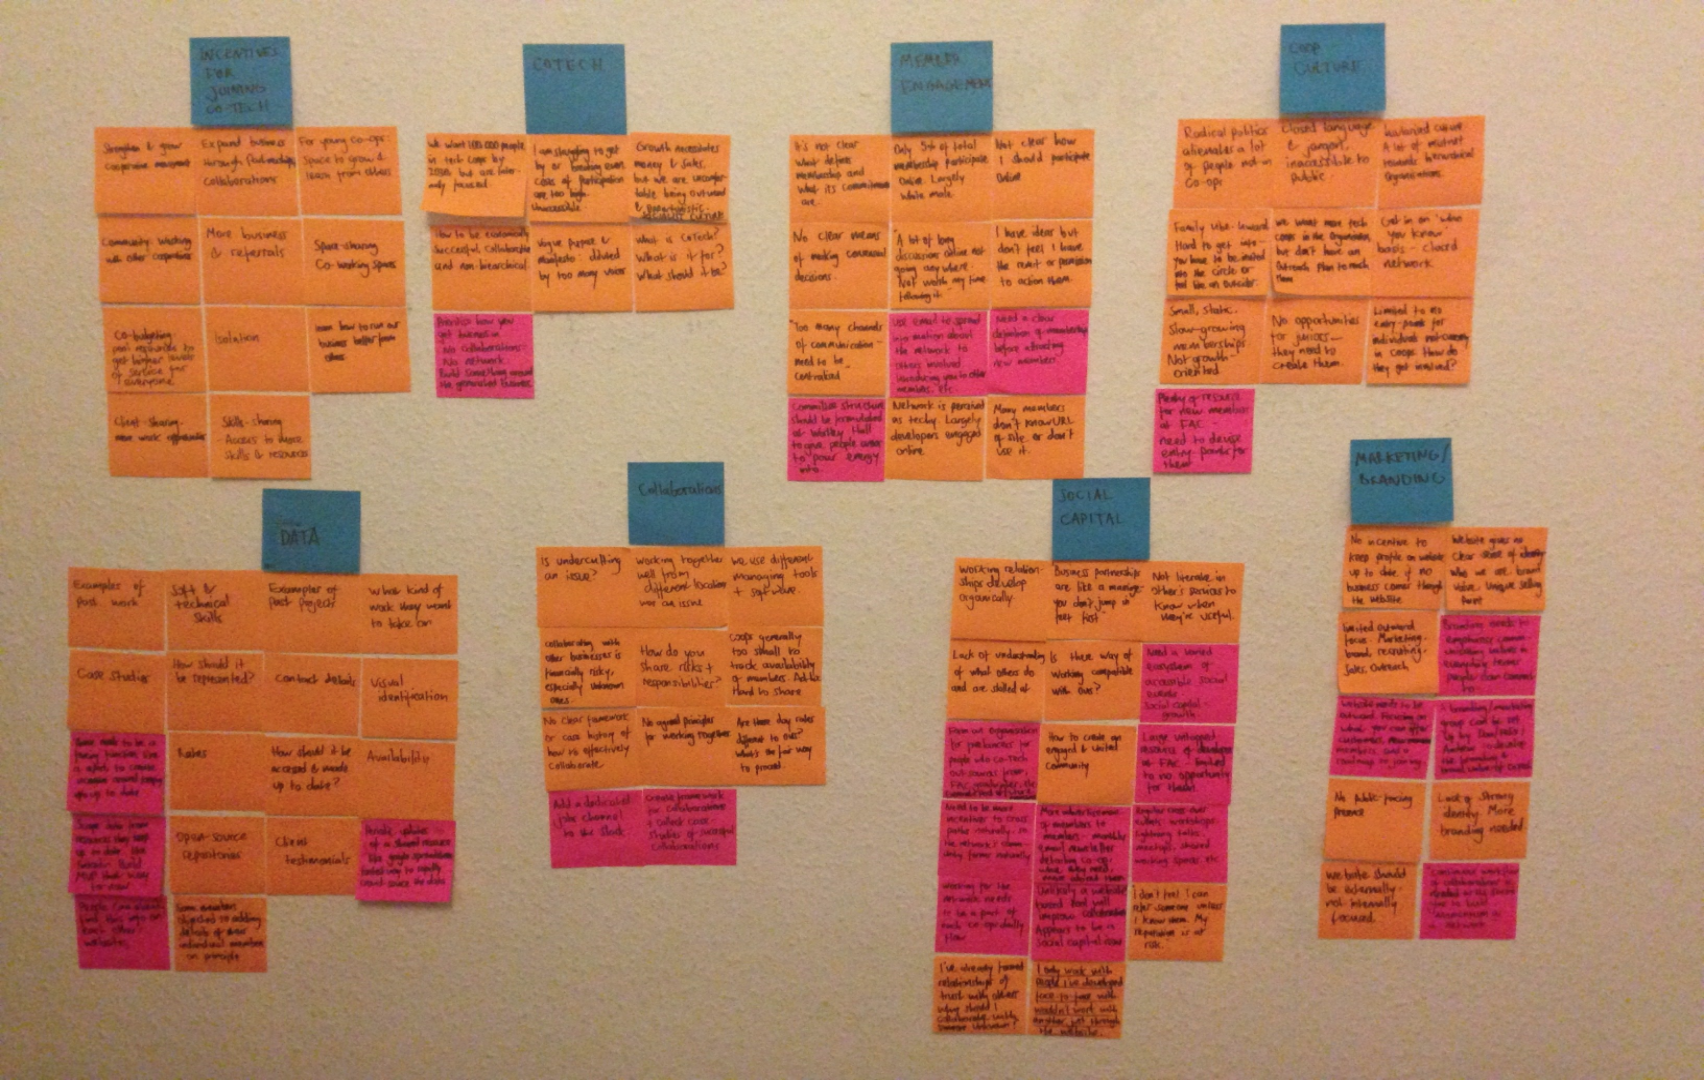 INCENTIVES
FOR
JOINING
CO-TECH
Strengthen & grow
cooperative movement
Expand business
through Partnerships,
Collaborations
For young co-ops:
Space to grow &
learn from others
Community: Working
with other cooperatives
More business
& referrals
Space-sharing
Co-working spaces
Co-budgeting
pool resources to
get higher levels
of service for
everyone
Isolation
Learn how to run our
business better from
others
Client-sharing-
more work opportunities
Skills-sharing
- Access to more
skills & resources
COTECH
We want 100,000 people
in tech coops by
2030 but are
focused
I am struggling to get
by or breaking even
costs of participation
are too high.
Growth necessitates
money & sales,
but we are
being outward
How to be economically
successful, collaborative
and non-hierarchical
Vague purpose &
manifesto: diluted
by too many voices
What is CoTech?
What is it for?
What should it be?
Prioritise how you
get business in
No collaborations-
No network.
Build something around
MEMBER
ENGAGEMENT
It's not clear
what defines
membership and
what its commitments
are.
Only 5% of total
membership participate
online. Largely
white male.
Not clear how
I should participate
online
No clear means
of making consensual
decisions.
"A lot of long
discussions online not
going anywhere.
Not worth my time
following it"
I have ideas but
don't feel I have
the remit or permission
to action them.
"Too many channels
of communication -
need to be
centralised
Use email to spread
information about
the network to
others involved
introducing you to other
members, etc.
Need a clear
definition of membership
before attracting
new members.
Committee structure
should be formulated
at Wortley Hall
to give people areas
to pour energy
into.
Network is perceived
as techy. Largely
developers engaged
online.
Many members
don't know URL
of site or don't
use it.
COOP
CULTURE
Radical politics
alienates a lot
of people not in
Co-ops
Closed language
& jargon,
inaccessible to
public.
A lot of mistrust
towards hierarchical
organisations.
Family like-inward
Hard to get into-
you have to be invited
into the circle or
feel like an outsider.
We want more tech
coops in the organisation,
but don't have an
Outreach Plan to reach
them
Get in on 'who
you know'
basis - closed
network
Small, static,
slow-growing
memberships
Not growth-
oriented
No opportunities
for juniors -
they need to
create them.
Limited to no
entry points for
individuals not currently
in coops. How do
they get involved?
Plenty of resource
for new members
at FAC -
need to devise
entry points for
them
DATA
Examples of
Past work
Soft &
technical
skills
Examples of
Past projects
What kind of
work they want
to take on
Case studies
How should it
be represented?
Contact details
Visual
identification
Rates
How should it be
accessed & made
up to date?
Availability
Open-source
repositories
Client
testimonials
Periodic updates
of a shared resource
like google spreadsheets
crowd-source the data
People can already
find this info on
each other's
websites
Some members
objected to adding
details of their
individual members
on principle
Collaborations
Is undercutting
an issue?
Working together
well from
different location
not an issue
We use different
managing tools
+ software.
Collaborating with
other businesses is
financially risky,
especially unknown
ones.
How do you
share risks +
responsibilities?
Coops generally
too small to
track availability
of members. Adds
Hard to share
No clear framework
or case history of
how to effectively
collaborate
No agreed principles
for working together
Are there day rates
different to ours?
What's the fair way
to proceed.
Add a dedicated
jobs channel
to the slack.
Create framework
for collaborations
+ collect case-
studies of successful
Collaborations
SOCIAL
CAPITAL
Working relation-
ships develop
organically
Business partnerships
are like a marriage-
you don't jump in
feet first"
Not literate in
other's services to
know when
they're useful.
Lack of understanding
of what others do
and are skilled at
Is there way of
working compatible
with ours?
Need a varied
ecosystem of
accessible social
events.
Social capital-
growth
How to create an
engaged & united
community
Large untapped
resource of developers
at FAC - limited
to no opportunity
for them
Need to be more
incentives to cross
paths naturally, so
the network/comm-
unity forms naturally
More advertisement
of members to
members - monthly
email newsletter
detailing co-op,
what they need,
Regular cross-over
events, workshops
lightning talks,
meetups, shared
working spaces etc
Working for the
network needs
to be a part of
each co-op's daily
flow
Unlikely a website
based tool will
improve collaboration
Appears to be a
social capital issue
I don't feel I can
refer someone unless
I know them. My
reputation is at
risk."
I've already formed
relationships of
trust with others
why should I
collaborate with
someone unknown?
I only work with
people I've developed
face to face with
wouldn't work with
another just through
the website.
MARKETING/
BRANDING
No incentive to
keep profile on website
up to date if no
business comes through
the website
Website gives no
clear sense of identity
who we are, brand
voice, Unique selling
point
Limited outward
focus. Marketing,
brand, recruiting,
sales, Outreach.
Branding needs to
No public facing
presence
Lack of strong
identity. More
branding needed
Website should
be externally-
not internally
focused.